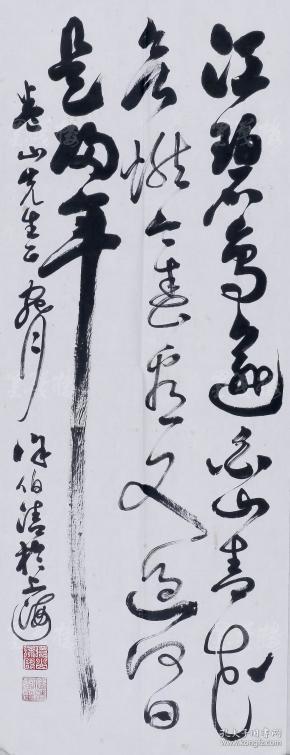 江碧鳥逾白山青花
欲燃今春看又過何日
是歸年
山先生正
徐伯清於上海
孔夫子旧书网